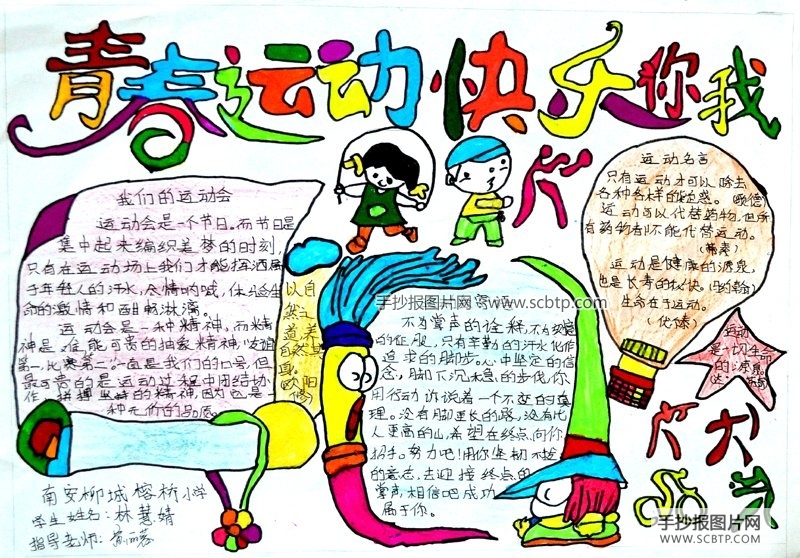 青春运动快乐你我
我们的运动会
运动会是一个节日。而节日是
集中起来编织着梦的时刻,
只有在运动场上我们才能挥洒属
于年轻人的汗水,尽情的喊,体验生
命的激情和酣畅淋漓。
运动会是一种精神,而精
神是难能可贵的抽象精神,“友谊
第一,比赛第二”一直是我们的口号,但
最可贵的是运动过程中团结协
作、拼搏坚持的精神,因为也是一
种无价的品质。
以自
然之
道,养
自然之
真。
欧阳
修
手抄报图片网 www.scbtp.com
不为掌声的诠释,不为
的征服,只有辛勤的汗水化作
追求的脚步。心中坚定的信
念,脚下沉稳的步伐,你
用行动诉说着一个不变的真
理。没有脚更长的路,没有比
人更高的山,希望在终点向你
招手。努力吧!用你坚韧不拔
的意志,去迎接终点的
掌声,相信吧成功
属于你。
运动名言
只有运动才可以除去
各种各样的疑惑。
运动可以代替药物,但所
有药物都不能代替运动。
运动是健康的源泉,
也是长寿的秘诀。(马约翰)
生命在于运动。
(伏尔泰)
运动
是一切生命
的源泉。
南安柳城榕桥小学
学生姓名:林慧婧
指导老师:
手抄报图片网
WWW.SCBTP.COM